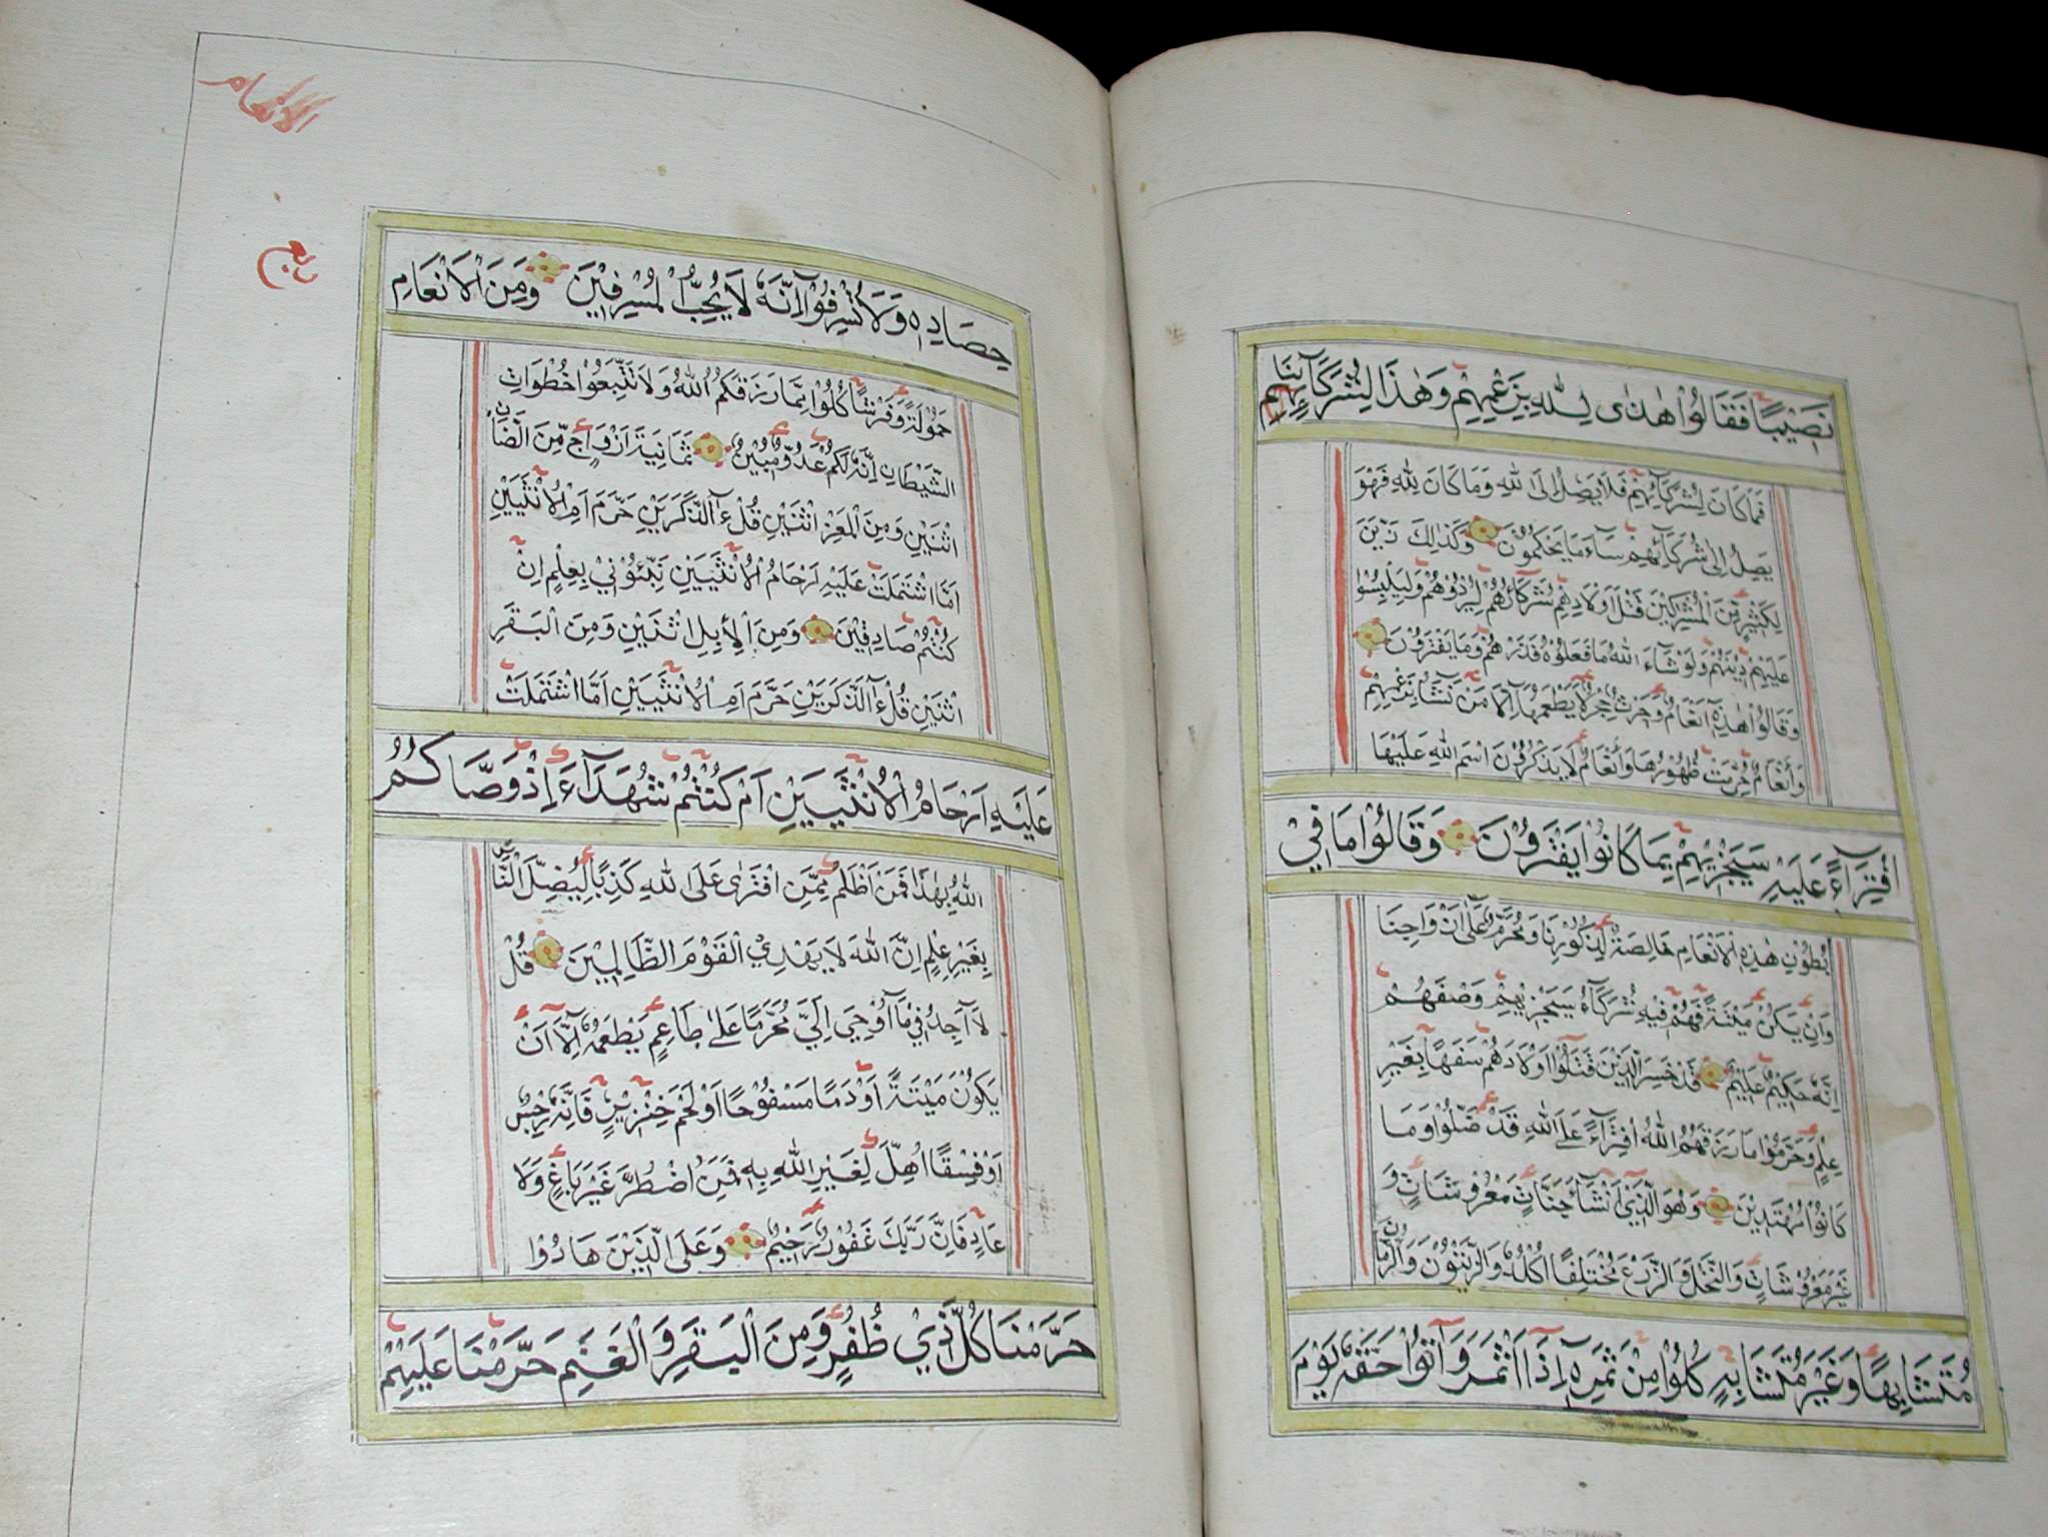 نَصِيْبًا فَقَالُوْا هٰذَا لِلّٰهِ بِزَعْمِهِمْ وَهٰذَا لِشُرَكَآئِنَا
فَمَا كَانَ لِشُرَكَآئِهِمْ فَلَا يَصِلُ اِلَى اللّٰهِ وَمَا كَانَ لِلّٰهِ فَهُوَ
يَصِلُ اِلٰى شُرَكَآئِهِمْ سَآءَ مَا يَحْكُمُوْنَ وَكَذٰلِكَ زَيَّنَ
لِكَثِيْرٍ مِّنَ الْمُشْرِكِيْنَ قَتْلَ اَوْلَادِهِمْ شُرَكَآؤُهُمْ لِيُرْدُوْهُمْ وَلِيَلْبِسُوْا
عَلَيْهِمْ دِيْنَهُمْ وَلَوْ شَآءَ اللّٰهُ مَا فَعَلُوْهُ فَذَرْهُمْ وَمَا يَفْتَرُوْنَ
وَقَالُوْا هٰذِهٖ اَنْعَامٌ وَحَرْثٌ حِجْرٌ لَا يَطْعَمُهَآ اِلَّا مَنْ نَّشَآءُ بِزَعْمِهِمْ
وَاَنْعَامٌ حُرِّمَتْ ظُهُوْرُهَا وَاَنْعَامٌ لَا يَذْكُرُوْنَ اسْمَ اللّٰهِ عَلَيْهَا
افْتِرَآءً عَلَيْهِ سَيَجْزِيْهِمْ بِمَا كَانُوْا يَفْتَرُوْنَ وَقَالُوْا مَا فِيْ
بُطُوْنِ هٰذِهِ الْاَنْعَامِ خَالِصَةٌ لِّذُكُوْرِنَا وَمُحَرَّمٌ عَلٰى اَزْوَاجِنَا
وَاِنْ يَّكُنْ مَّيْتَةً فَهُمْ فِيْهِ شُرَكَآءُ سَيَجْزِيْهِمْ وَصْفَهُمْ
اِنَّهٗ حَكِيْمٌ عَلِيْمٌ قَدْ خَسِرَ الَّذِيْنَ قَتَلُوْا اَوْلَادَهُمْ سَفَهًا بِغَيْرِ
عِلْمٍ وَّحَرَّمُوْا مَا رَزَقَهُمُ اللّٰهُ افْتِرَآءً عَلَى اللّٰهِ قَدْ ضَلُّوْا وَمَا
كَانُوْا مُهْتَدِيْنَ وَهُوَ الَّذِيْ اَنْشَاَ جَنَّاتٍ مَّعْرُوْشَاتٍ وَ
غَيْرَ مَعْرُوْشَاتٍ وَالنَّخْلَ وَالزَّرْعَ مُخْتَلِفًا اُكُلُهٗ وَالزَّيْتُوْنَ وَالرُّمَّانَ
مُتَشَابِهًا وَغَيْرَ مُتَشَابِهٍ كُلُوْا مِنْ ثَمَرِهٖ اِذَا اَثْمَرَ وَآتُوْا حَقَّهٗ يَوْمَ
الانعام
ربع
حِصَادِهٖ وَلَا تُسْرِفُوْا اِنَّهٗ لَا يُحِبُّ الْمُسْرِفِيْنَ وَمِنَ الْاَنْعَامِ
حَمُوْلَةً وَّفَرْشًا كُلُوْا مِمَّا رَزَقَكُمُ اللّٰهُ وَلَا تَتَّبِعُوْا خُطُوَاتِ
الشَّيْطَانِ اِنَّهٗ لَكُمْ عَدُوٌّ مُّبِيْنٌ ثَمَانِيَةَ اَزْوَاجٍ مِّنَ الضَّاْنِ
اثْنَيْنِ وَمِنَ الْمَعْزِ اثْنَيْنِ قُلْ ءآلذَّكَرَيْنِ حَرَّمَ اَمِ الْاُنْثَيَيْنِ
اَمَّا اشْتَمَلَتْ عَلَيْهِ اَرْحَامُ الْاُنْثَيَيْنِ نَبِّئُوْنِيْ بِعِلْمٍ اِنْ
كُنْتُمْ صَادِقِيْنَ وَمِنَ الْاِبِلِ اثْنَيْنِ وَمِنَ الْبَقَرِ
اثْنَيْنِ قُلْ ءآلذَّكَرَيْنِ حَرَّمَ اَمِ الْاُنْثَيَيْنِ اَمَّا اشْتَمَلَتْ
عَلَيْهِ اَرْحَامُ الْاُنْثَيَيْنِ اَمْ كُنْتُمْ شُهَدَآءَ اِذْ وَصَّاكُمُ
اللّٰهُ بِهٰذَا فَمَنْ اَظْلَمُ مِمَّنِ افْتَرٰى عَلَى اللّٰهِ كَذِبًا لِّيُضِلَّ النَّاسَ
بِغَيْرِ عِلْمٍ اِنَّ اللّٰهَ لَا يَهْدِي الْقَوْمَ الظَّالِمِيْنَ قُلْ
لَآ اَجِدُ فِيْ مَآ اُوْحِيَ اِلَيَّ مُحَرَّمًا عَلٰى طَاعِمٍ يَطْعَمُهٗ اِلَّآ اَنْ
يَكُوْنَ مَيْتَةً اَوْ دَمًا مَسْفُوْحًا اَوْ لَحْمَ خِنْزِيْرٍ فَاِنَّهٗ رِجْسٌ
اَوْ فِسْقًا اُهِلَّ لِغَيْرِ اللّٰهِ بِهٖ فَمَنِ اضْطُرَّ غَيْرَ بَاغٍ وَّلَا
عَادٍ فَاِنَّ رَبَّكَ غَفُوْرٌ رَّحِيْمٌ وَعَلَى الَّذِيْنَ هَادُوْا
حَرَّمْنَا كُلَّ ذِيْ ظُفُرٍ وَّمِنَ الْبَقَرِ وَالْغَنَمِ حَرَّمْنَا عَلَيْهِمْ